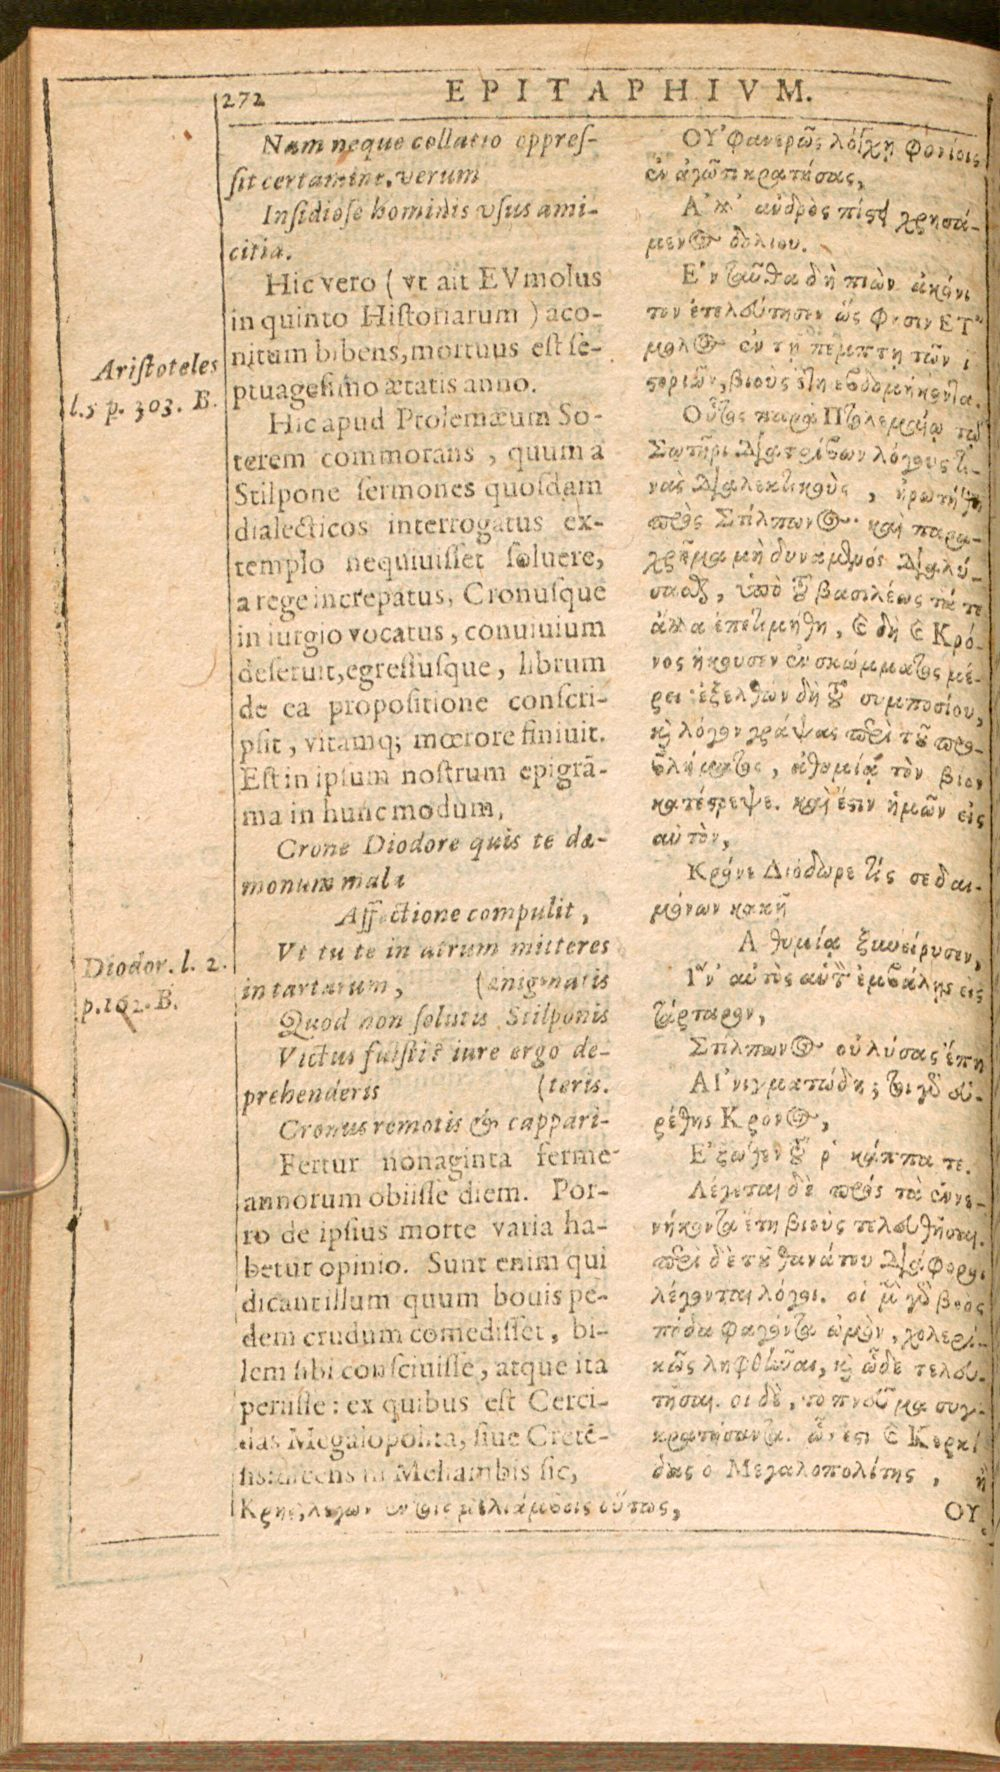 272
EPITAPHIVM.
Nam neque collatio oppreſ-
ſit certamine, verum
Inſidioſe hominis vſus ami-
citia.
Hic vero (vt ait EVmolus
in quinto Hiſtoriarum) aco-
nitum bibens, mortuus eſt ſe-
ptuageſimo ætatis anno.
Hic apud Ptolemæum So-
terem commorans, quum a
Stilpone ſermones quoſdam
dialecticos interrogatus ex-
templo nequiuiſſet ſoluere,
a rege increpatus, Cronuſque
in iurgio vocatus, conuiuium
deſeruit, egreſſuſque, librum
de ea propoſitione conſcri-
pſit, vitamq; mœrore finiuit.
Eſt in ipſum noſtrum epigrā-
ma in hunc modum,
Crone Diodore quis te dæ-
monum mala
Aſſectione compulit,
Vt tu te in atrum mitteres
in tartarum, (ænigmatis
Quod non ſolutis Stilponis
Victus fuiſti? iure ergo de-
prehenderis (teris.
Cronus remotis & cappari-
Fertur nonaginta ferme
annorum obiiſſe diem. Por-
ro de ipſius morte varia ha-
betur opinio. Sunt enim qui
dicant illum quum bouis pe-
dem crudum comediſſet, bi-
lem ſibi conſciuiſſe, atque ita
periiſſe: ex quibus eſt Cerci-
das Megalopolita, ſiue Cretē-
ſis: dicens in Meliambis ſic,
Aristoteles
l.5 p. 303. B.
Diodor. l. 2.
p.162. B.
ΟΥ' φανερῶς λόγχῃ φονίοις
ἐν ἀγῶσι κρατήσας,
Α'λλ' ἀνδρὸς πίστει χρησά-
μενος δολίου.
Ε'νταῦθα δὴ πιὼν ἀκόνι
τον ἐτελεύτησεν ὥς φησιν ΕΥ"
μολος ἐν τῇ πέμπτῃ τῶν ἱ
στοριῶν, βιοὺς ἔτη ἑβδομήκοντα.
Οὗτος παρὰ Πτολεμαίῳ τῷ
Σωτῆρι διατρίβων λόγους τι-
νὰς διαλεκτικοὺς, ἠρωτήθη
πρὸς Στίλπωνος. καὶ παρα-
χρῆμα μὴ δυνάμενος διαλύ-
σασθαι, ὑπὸ τοῦ βασιλέως τά τε
ἄλλα ἐπετιμήθη, καὶ δὴ καὶ Κρό-
νος ἤκουσεν ἐν σκώμματος μέ-
ρει· ἐξελθὼν δὴ τοῦ συμποσίου,
καὶ λόγον γράψας περὶ τοῦ προ-
βλήματος, ἀθυμίᾳ τὸν βίον
κατέστρεψε. καὶ ἔστιν ἡμῶν εἰς
αὐτὸν,
Κρόνε Διόδωρε τίς σε δαι-
μόνων κακῇ
Α'θυμίᾳ ξυνείρυσεν,
Ι"ν' αὐτὸς αὑτὸν ἐμβάλῃς εἰς
τάρταρον,
Στίλπωνος οὐ λύσας ἔπη
ΑΙ'νιγματώδη; τοι γὰρ εὑ-
ρέθης Κρόνος,
Ε'ξωθεν τοῦ ῥ κάππα τε.
Λέγεται δὲ πρὸς τὰ ἐννε-
νήκοντα ἔτη βιοὺς τελευτῆσαι.
περὶ δὲ τοῦ θανάτου διάφοροι
λέγονται λόγοι. οἱ μὲν γὰρ βοὸς
πόδα φαγόντα ὠμὸν, χολερι-
κῶς ληφθῆναι, καὶ ὧδε τελευ-
τῆσαι. οἱ δὲ, τὸ πνεῦμα συγ-
κρατήσαντα. ὧν ἐστι καὶ Κερκί
δας ὁ Μεγαλοπολίτης, ἢ
Κρὴς, λέγων ἐν τοῖς μελιάμβοις οὕτως,
ΟΥ